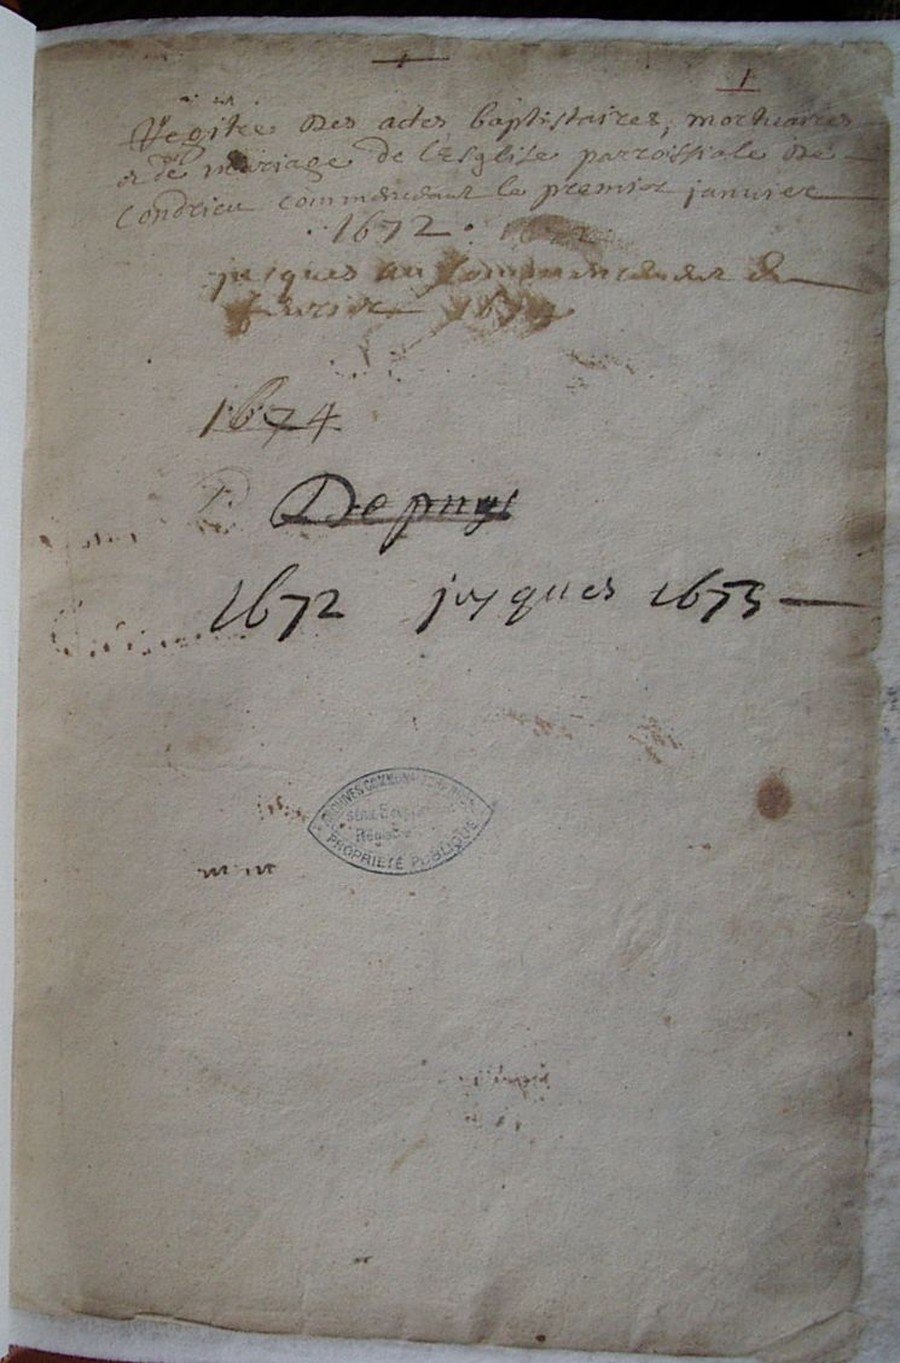 1
Regitre Des actes baptistaires, mortuaires
et de mariage de l'Esglise parroissiale De
Condrieu commenceant le premier janvier
1672.
jusques au commencement de
1674
Depuys
1672 jusques 1673
ARCHIVES COMMUNALES
Série
PROPRIÉTÉ PUBLIQUE